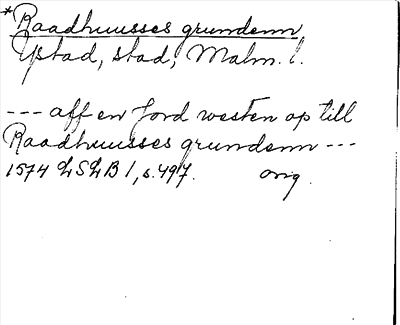 *Raadhuusses grundenn
Ystad, stad, Malm. l.
--- aff en Jord westen op till
Raadhuusses grundenn ---
1574 LSLB 1, s. 497. orig.